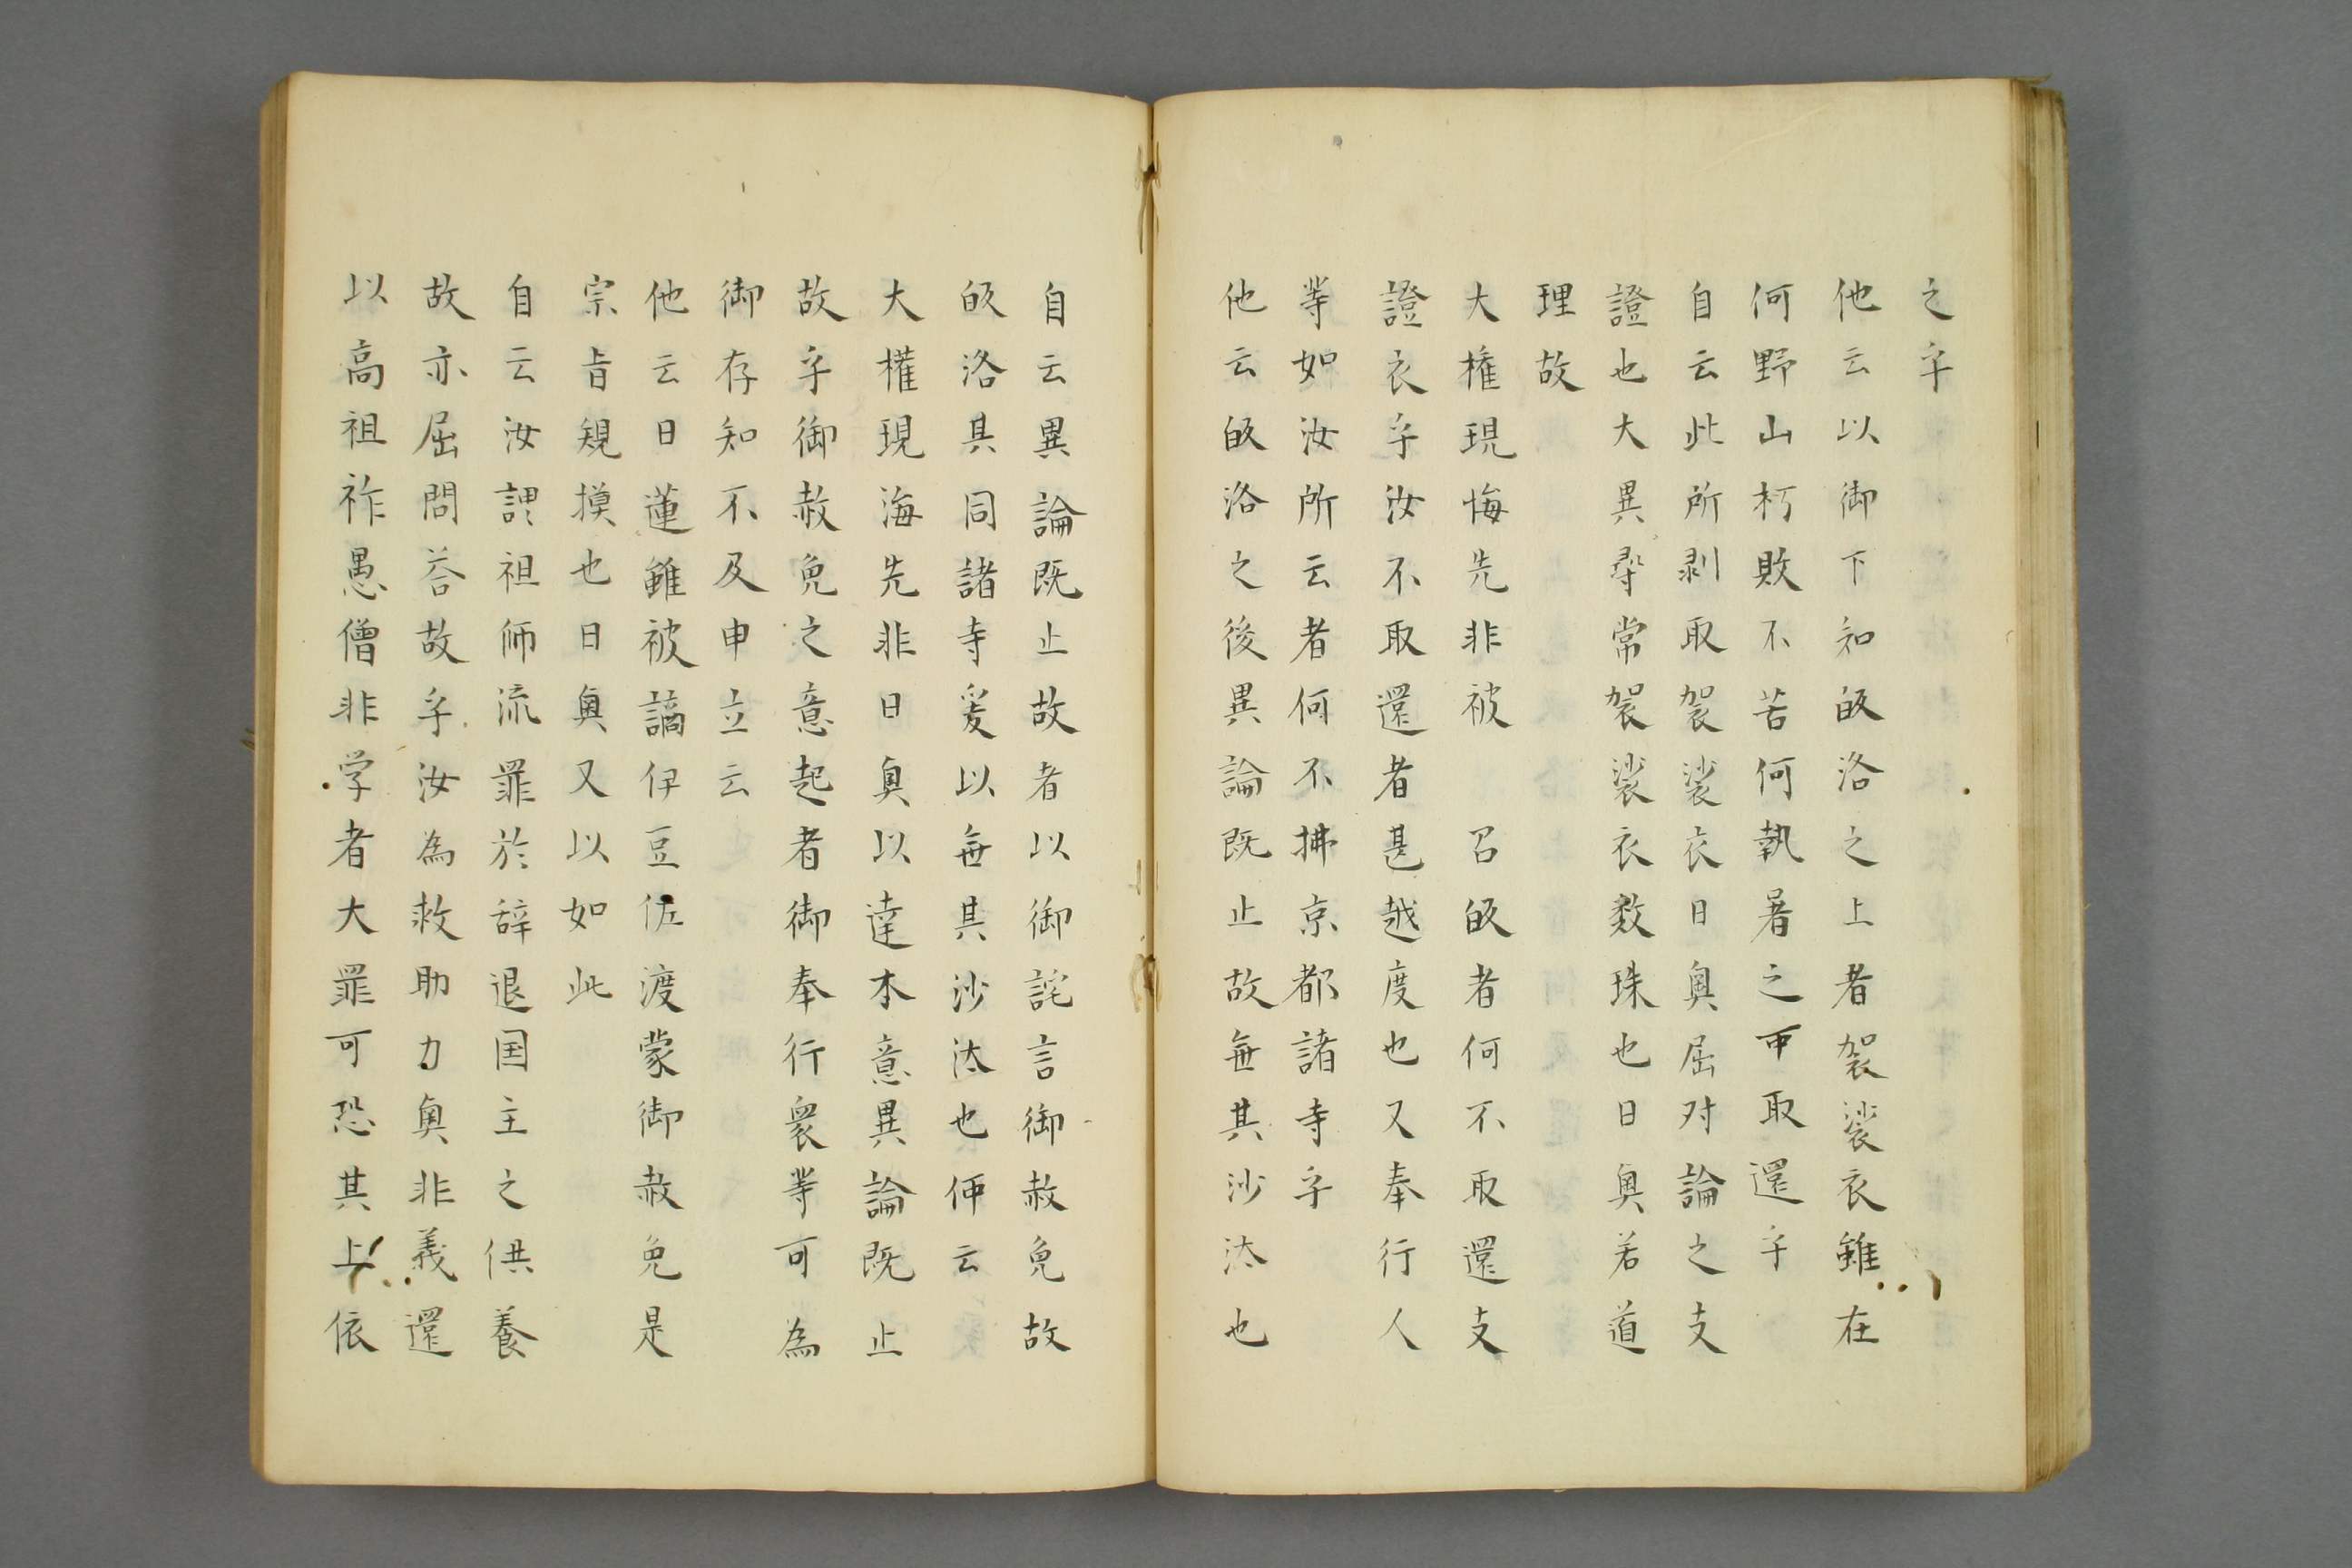 之乎
他云以御下知皈洛之上者袈裟衣雖在
何野山朽敗不苦何執着之可取還乎
自云此所剥取袈裟衣日奥屈対論之支
證也大異尋常袈裟衣数珠也日奥若道
理故
大権現悔先非被 召皈者何不取還支
證衣乎汝不取還者甚越度也又奉行人
等如汝所云者何不拂京都諸寺乎
他云皈洛之後異論既止故無其沙汰也
自云異論既止故者以御詫言御赦免故
皈洛其同諸寺爰以無其沙汰也仰云
大権現海先非日奥以達本意異論既止
故乎御赦免之意起者御奉行衆等可為
御存知不及申立云
他云日蓮雖被謫伊豆佐渡蒙御赦免是
宗旨規摸也日奥又以如此
自云汝謂祖師流罪於辞退国主之供養
故亦屈問答故乎汝為救助力奥非義還
以高祖祚愚僧非学者大罪可恐其上依